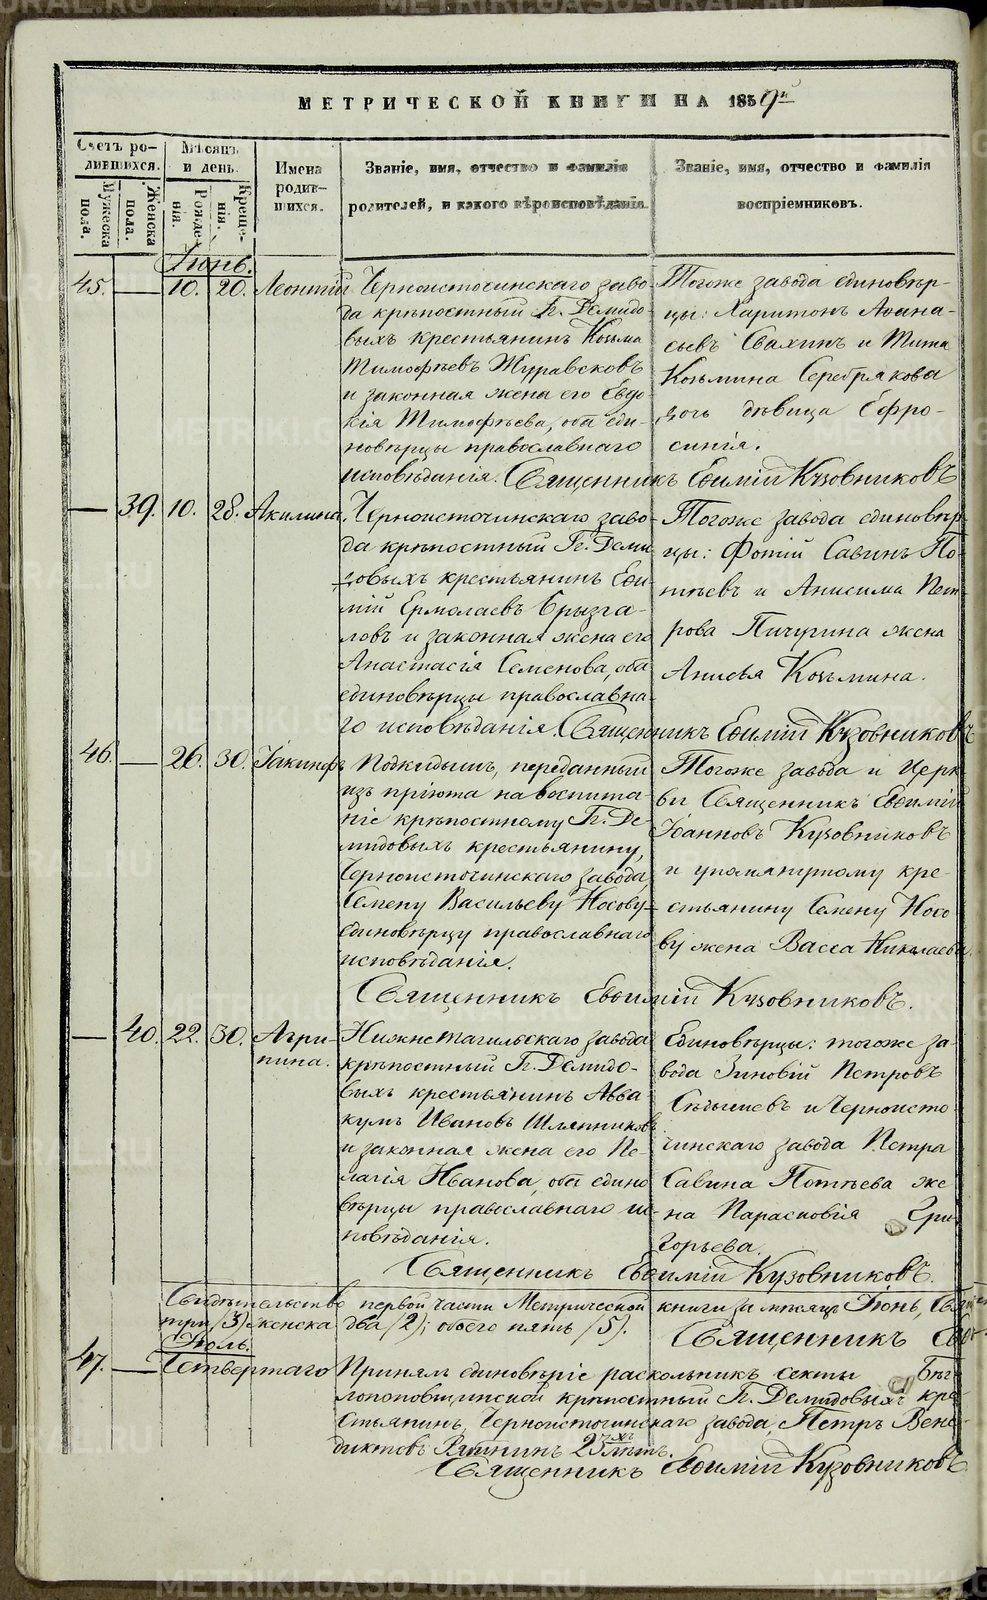 МЕТРИЧЕСКОЙ КНИГИ НА 1859й
Счетъ ро-
дившихся.
Мужеска
пола.
Женска
пола.
Мѣсяцъ
и день.
Рожде-
нія.
Креще-
нія.
Имена
родив-
шихся.
Званіе, имя, отчество и фамилія
родителей, и какого вѣроисповѣданія.
Званіе, имя, отчество и фамилія
воспріемниковъ.
Іюнь.
45. — 10. 20. Леонтій
Черноисточинскаго заво-
да крѣпостный Гг. Демидо-
выхъ крестьянинъ Козьма
Тимофѣевъ Журавсковъ
и законная жена его Евдо-
кія Тимофѣева, оба еди-
новѣрцы православнаго
исповѣданія.
Тогоже завода единовѣр-
цы: Харитонъ Аѳана-
сьевъ Свахинъ и Тита
Козьмина Серебрякова
дочь дѣвица Ефро-
синія.
Священникъ Евѳимій Кузовниковъ
— 39. 10. 28. Акилина.
Черноисточинскаго заво-
да крѣпостный Гг. Деми-
довыхъ крестьянинъ Еѳи-
мій Ермолаевъ Брызга-
ловъ и законная жена его
Анастасія Семенова, оба
единовѣрцы православна-
го исповѣданія.
Тогоже завода единовѣр-
цы: Фотій Савинъ По-
тѣевъ и Анисима Пет-
рова Пичугина жена
Анисья Козьмина.
Священникъ Евѳимій Кузовниковъ
46. — 26. 30. Іакинфъ
Подкидышъ, переданный
изъ пріюта на воспита-
ніе крѣпостному Гг. Де-
мидовыхъ крестьянину,
Черноисточинскаго завода,
Семену Васильеву Носову
единовѣрцу православнаго
исповѣданія.
Тогоже завода и Церк-
ви Священникъ Евѳимій
Іоанновъ Кузовниковъ
и упомянутому кре-
стьянину Семену Носо
ву жена Васса Николаева.
Священникъ Евѳимій Кузовниковъ.
— 40. 22. 30. Агри-
пина.
Нижнетагильскаго завода
крѣпостный Гг. Демидо-
выхъ крестьянинъ Авва-
кумъ Ивановъ Шляпниковъ
и законная жена его Пе-
лагія Иванова, оба едино
вѣрцы православнаго ис-
повѣданія.
Единовѣрцы: тогоже за-
вода Зиновій Петровъ
Сѣдышевъ и Черноисто-
чинскаго завода Петра
Савина Потѣева же
на Парасковія Гри-
горьева.
Священникъ Евѳимій Кузовниковъ.
Свидѣтельство первой части Метрической книги за мѣсяцъ Іюнь,
три (3) женска два (2); обоего пять (5). Священникъ
Іюль.
47. — Четвертаго Принялъ единовѣріе раскольникъ секты Бѣг-
лопоповщинской крѣпостный Гг. Демидовыхъ кре-
стьянинъ, Черноисточинскаго завода, Петръ Вене-
диктовъ 25 лѣтъ.
Священникъ Евѳимій Кузовниковъ
METRIKI.GASO-URAL.RU